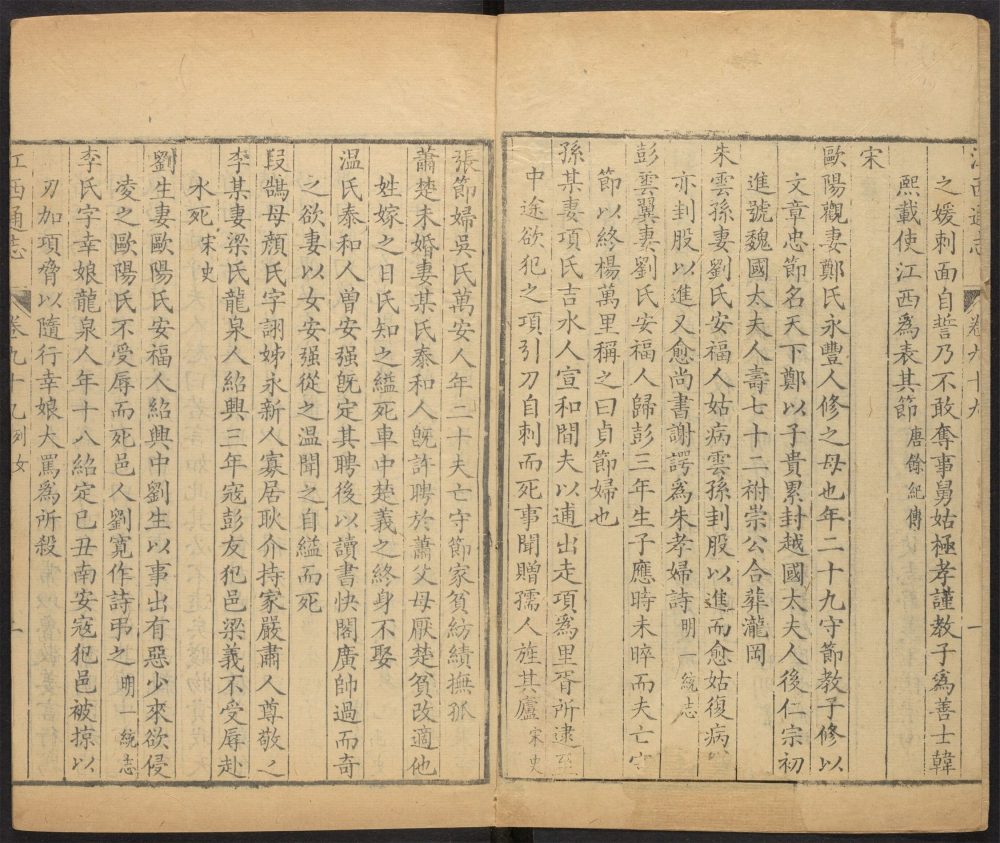 江西通志 卷九十九 一
之媛刺面自誓乃不敢奪事舅姑極孝謹教子為善士韓
熙載使江西為表其節唐餘紀傳
宋
歐陽觀妻鄭氏永豐人修之母也年二十九守節教子修以
文章忠節名天下鄭以子貴累封越國太夫人後仁宗初
進號魏國太夫人壽七十二祔崇公合葬瀧岡
朱雲孫妻劉氏安福人姑病雲孫刲股以進而愈姑復病
亦刲股以進又愈尚書謝諤為朱孝婦詩明一統志
彭雲翼妻劉氏安福人歸彭三年生子應時未晬而夫亡守
節以終楊萬里稱之曰貞節婦也
孫某妻項氏吉水人宣和間夫以逋出走項為里胥所逮至
中途欲犯之項引刀自刺而死事聞贈孺人旌其廬宋史
張節婦吳氏萬安人年二十夫亡守節家貧紡績撫孤
蕭楚未婚妻某氏泰和人旣許聘於蕭父母厭楚貧改適他
姓嫁之日氏知之縊死車中楚義之終身不娶
溫氏泰和人曾安强旣定其聘後以讀書快閣廣帥過而奇
之欲妻以女安强從之溫聞之自縊而死
段鵠母顏氏字詡姊永新人寡居耿介持家嚴肅人尊敬之
李某妻梁氏龍泉人紹興三年寇彭友犯邑梁義不受辱赴
水死宋史
劉生妻歐陽氏安福人紹興中劉生以事出有惡少來欲侵
凌之歐陽氏不受辱而死邑人劉寬作詩弔之明一統志
李氏字幸娘龍泉人年十八紹定已丑南安寇犯邑被掠以
刃加項脅以隨行幸娘大罵為所殺
江西通志 卷九十九列女 二